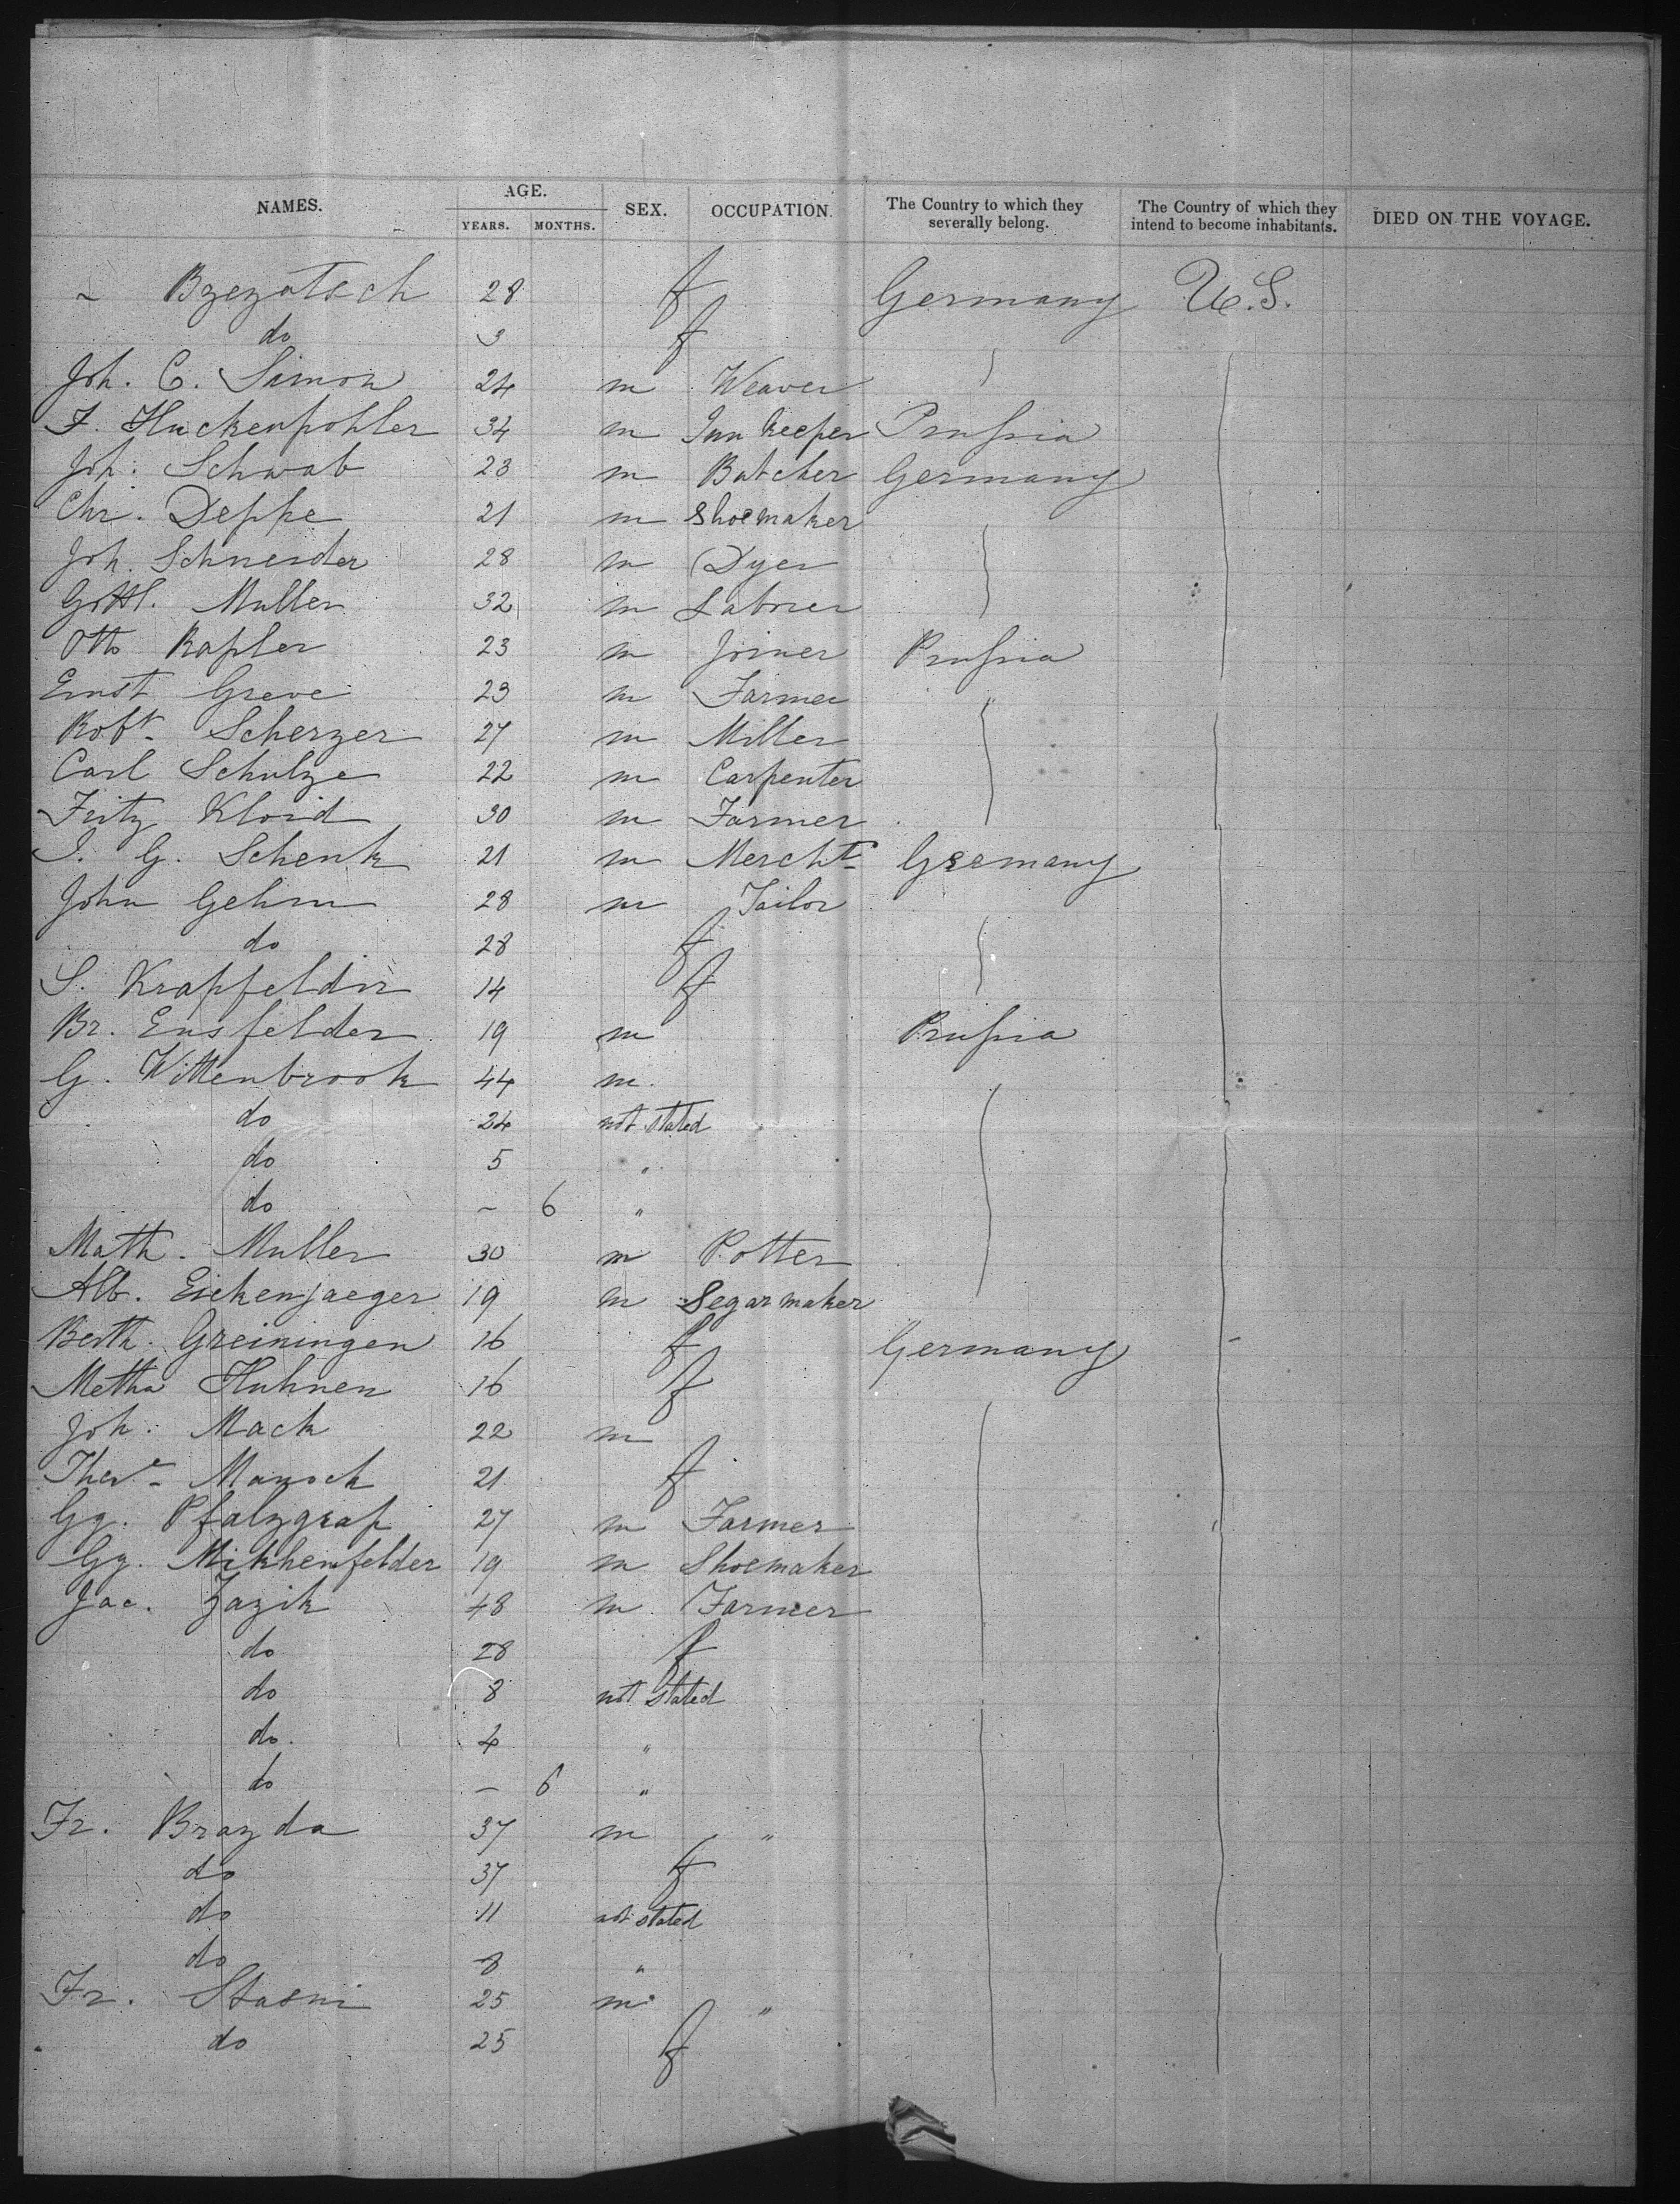 NAMES. AGE. SEX. OCCUPATION. The Country to which they severally belong. The Country of which they intend to become inhabitants. DIED ON THE VOYAGE.
YEARS. MONTHS.
~ Bzezatsch 28 f Germany U.S.
do 3 f
Joh. C. Simon 24 m Weaver
F. Huckenpohler 34 m Inn keeper Prussia
Joh. Schwab 23 m Butcher Germany
Chr. Deppe 21 m Shoemaker
Joh. Schneider 28 m Dyer
Gottl. Muller 32 m Laborer
Otto Kapler 23 m Joiner Prussia
Ernst Greve 23 m Farmer "
Robt. Scherzer 27 m Miller
Carl Schulze 22 m Carpenter
Fritz Kloid 30 m Farmer
J. G. Schenk 21 m Mercht. Germany
John Gehm 28 m Tailor
do 28 f
S. Krapfeldin 14 f
Br. Ensfelder 19 m Prussia
G. Wittenbrook 44 m
do 24 not stated
do 5 "
do – 6 "
Math. Muller 30 m Potter
Alb. Eickenjaeger 19 m Segarmaker
Berth. Greiningen 16 f Germany
Metha Huhnen 16 f
Joh. Mack 22 m
There. Manock 21 f
Gg. Pfalzgraf 27 m Farmer
Gg. Mikhenfelder 19 m Shoemaker
Jac. Zazik 48 m Farmer
do 28 f
do 8 not stated
do. 4 "
do – 6 "
Fr. Brazda 37 m "
do 37 f
do 11 not stated
do 8 "
Fr. Stasni 25 m "
do 25 f